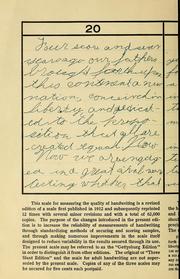 20
Four score and seven
years ago our fathers
brought forth upon
this continent a new
nation, conceived in
liberty and dedicat-
ed to the propo-
sition that all are
created equal. Now
now we are engag
ed in a great civil war
testing whether that
This scale for measuring the quality of handwriting is a revised
edition of a scale first published in 1912 and subsequently reprinted
12 times with several minor revisions and with a total of 62,000
copies. The purpose of the changes introduced in the present edi-
tion is to increase the reliability of measurements of handwriting
through standardizing methods of securing and scoring samples,
and through making numerous improvements in the scale itself
designed to reduce variability in the results secured through its use.
The present scale may be referred to as the "Gettysburg Edition"
in order to distinguish it from others. The original or "Three
Slant Edition" and the scale for adult handwriting are not super-
seded by the present scale. Copies of any of the three scales may
be secured for five cents each postpaid.